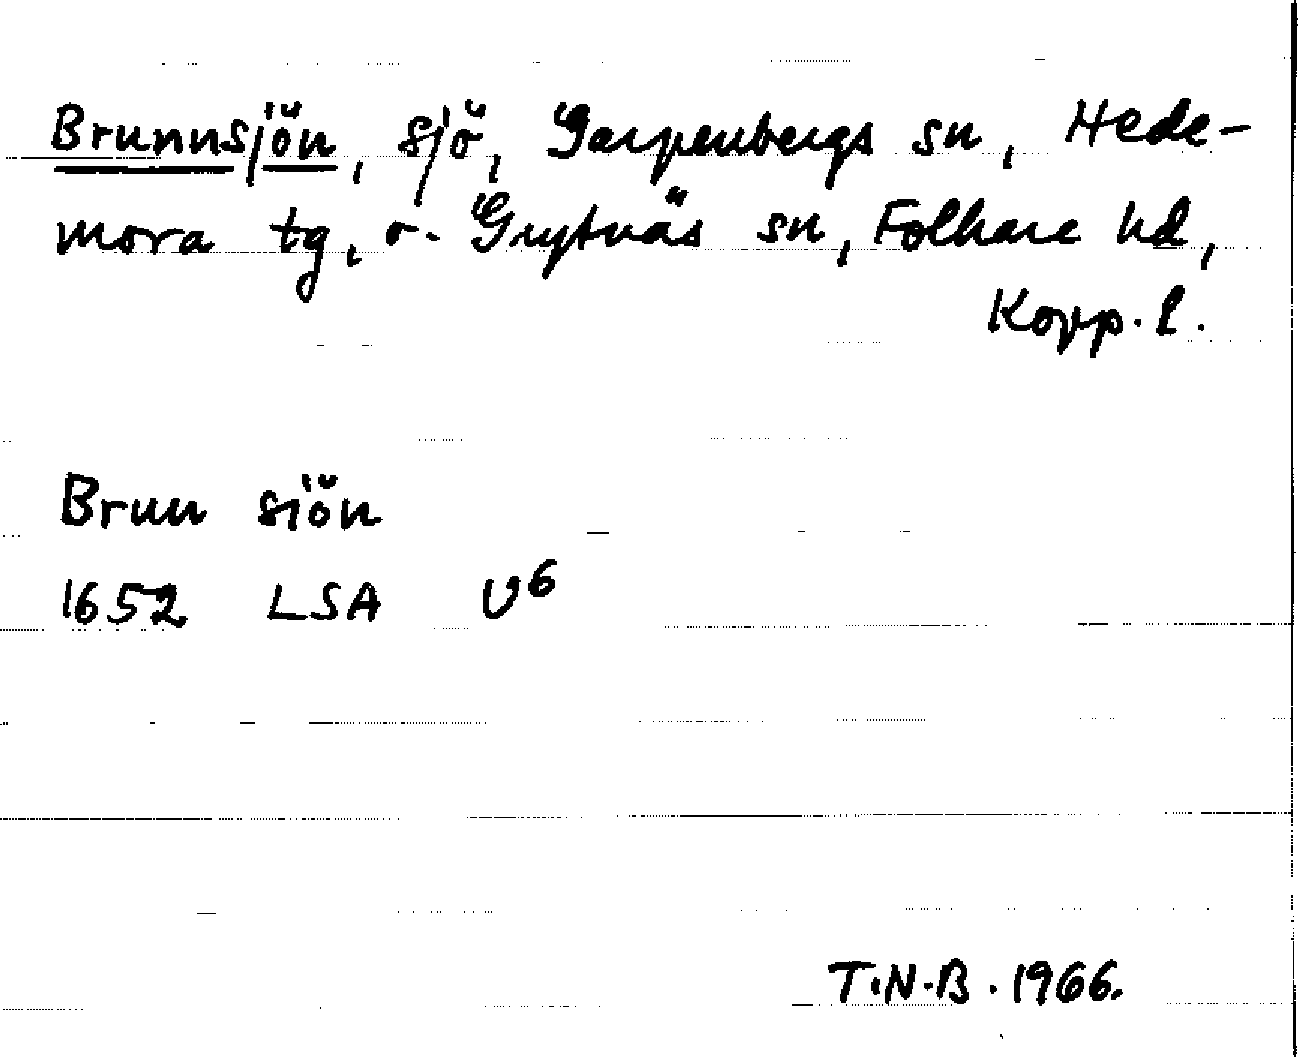 Brunnsjön, sjö, Garpenbergs sn, Hede-
mora tg, o. Grytnäs sn, Folkare hd,
Kopp. l.
Brun siön
1652 LSA U⁶
T.N.B. 1966.